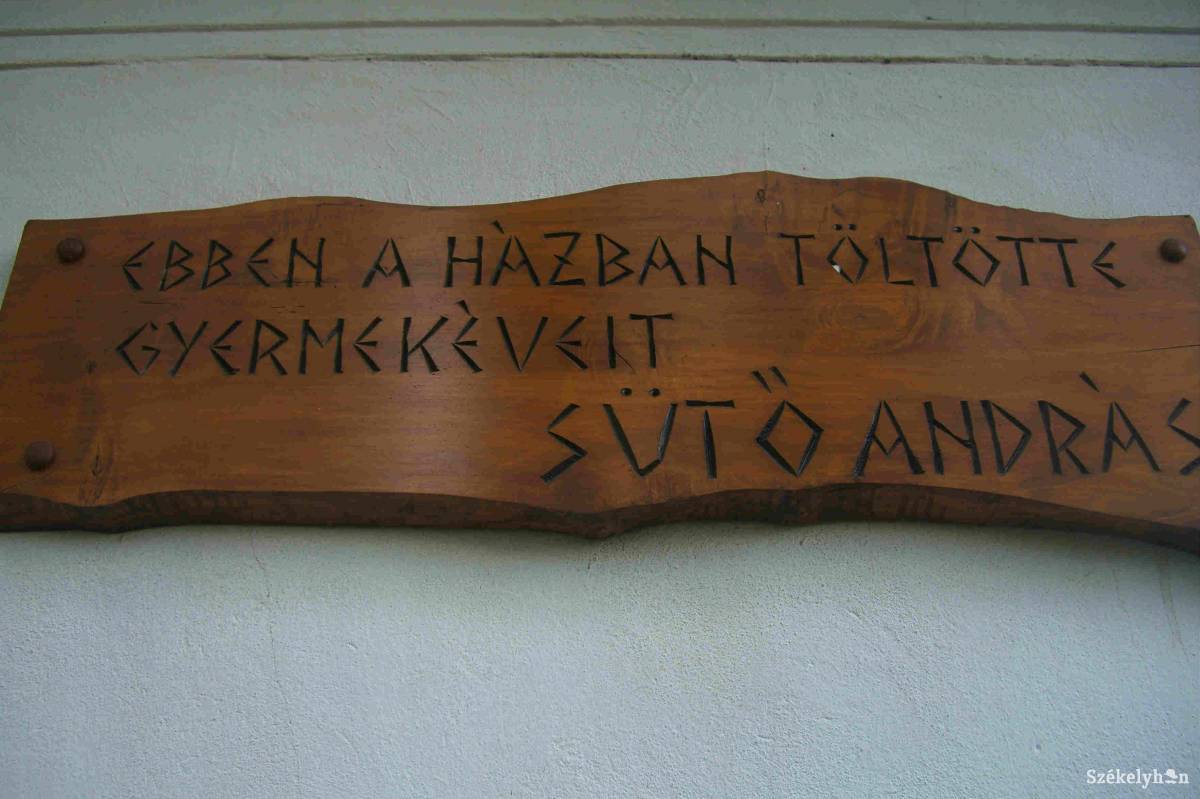 EBBEN A HÀZBAN TÖLTÖTTE
GYERMEKÈVEIT
SÜTŐ ANDRÀS
Székelyhon